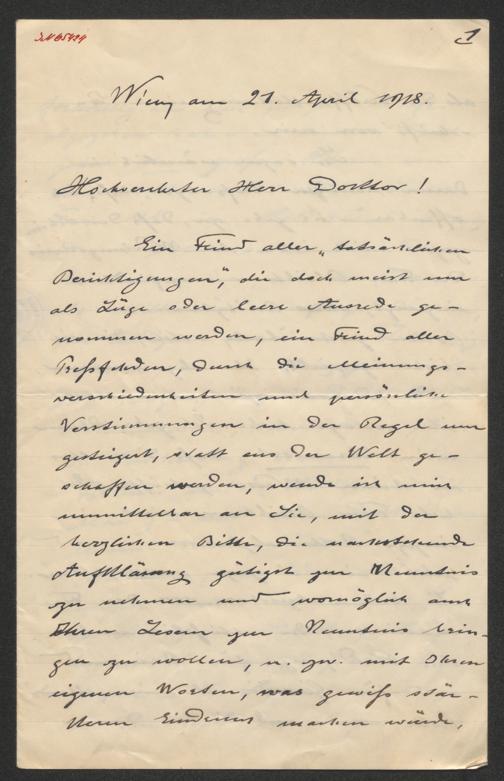 1
Wien, am 21. April 1918.
Hochverehrter Herr Doktor!
Ein Feind aller „tatsächlichen
Berichtigungen“, die doch meist nur
als Lüge oder leere Ausrede ge-
nommen werden, ein Feind aller
Preßfehden, durch die Meinungs-
verschiedenheiten und persönliche
Verstimmungen in der Regel nur
gesteigert, statt aus der Welt ge-
schaffen werden, wende ich mich
unmittelbar an Sie, mit der
herzlichen Bitte, die nachstehende
Aufklärung gütigst zur Kenntnis
zu nehmen und womöglich auch
Ihren Lesern zur Kenntnis brin-
gen zu wollen, u. zw. mit Ihren
eigenen Worten, was gewiß stär-
keren Eindruck machen würde,